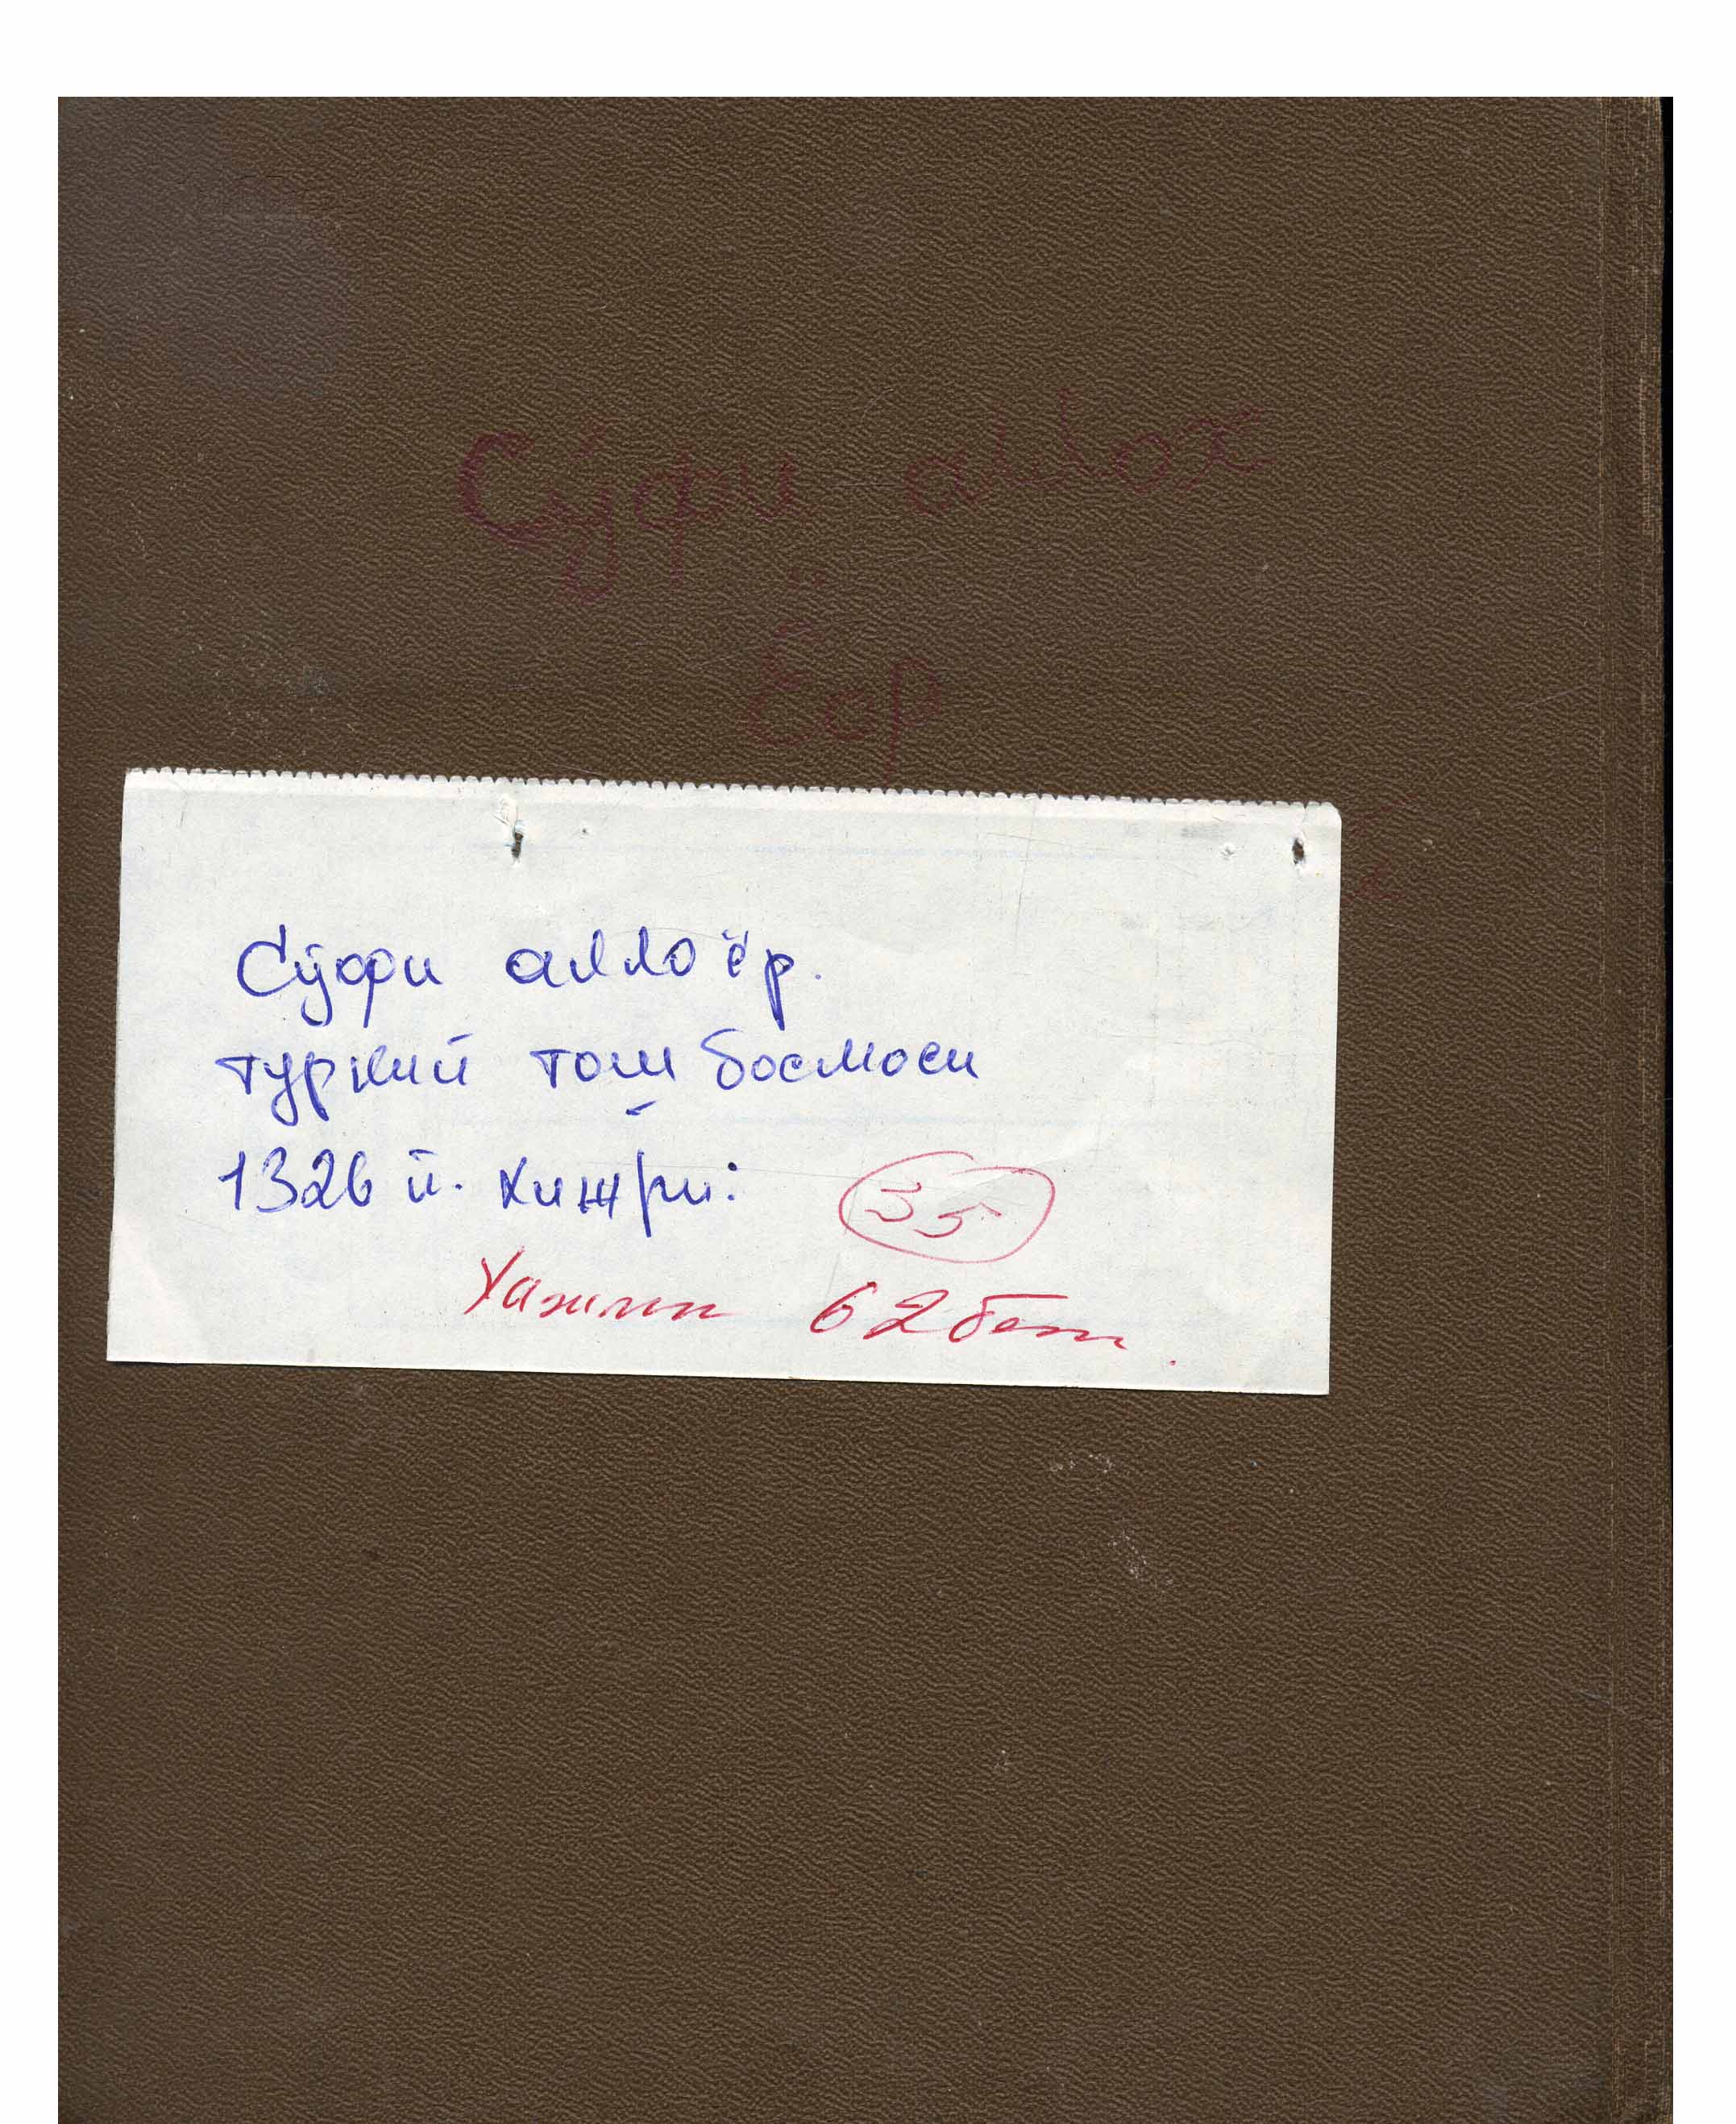 Сўфи аллох
Ёор
Сўфи аллоёр.
туркий тош босмоси
1326 й. хижри:
35
Хажми 62 бет.